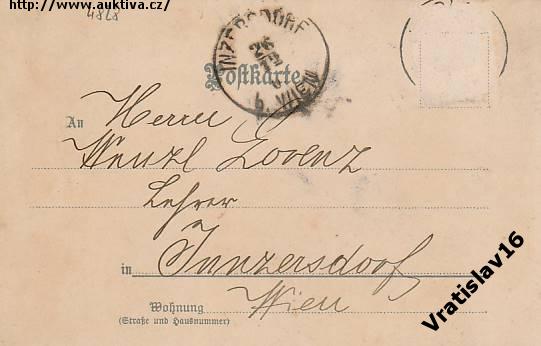 http://www.auktiva.cz/
4828
INZERSDORF
26
b. WIEN
Postkarte
An Herrn
Wenzl Lorenz
Lehrer
in Inzersdorf
Wien
Wohnung
(Straße und Hausnummer)
Vratislav16